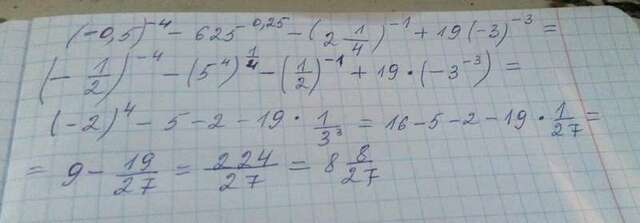 (-0,5)⁻⁴ - 625⁻⁰'²⁵ - (2 1/4)⁻¹ + 19(-3)⁻³ =
(-1/2)⁻⁴ - (5⁴)^(1/4) - (1/2)⁻¹ + 19 · (-3⁻³) =
(-2)⁴ - 5 - 2 - 19 · 1/3³ = 16 - 5 - 2 - 19 · 1/27 =
= 9 - 19/27 = 224/27 = 8 8/27